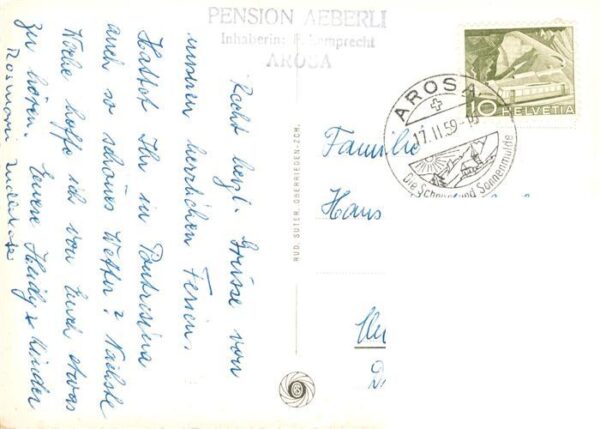 PENSION AEBERLI
Inhaberin: Lamprecht
AROSA
Recht herzl. Grüsse von
unseren herrlichen Ferien.
Hattet Ihr in Pontresina
auch so schönes Wetter? Nächste
Woche hoffe ich von Euch etwas
zu hören. Eure Heidy + Kinder
Rosmarie
RUD. SUTER, OBERRIEDEN-ZCH.
10 HELVETIA
AROSA
17.II.59
Die Schnee und Sonnenmulde
Familie
Hans